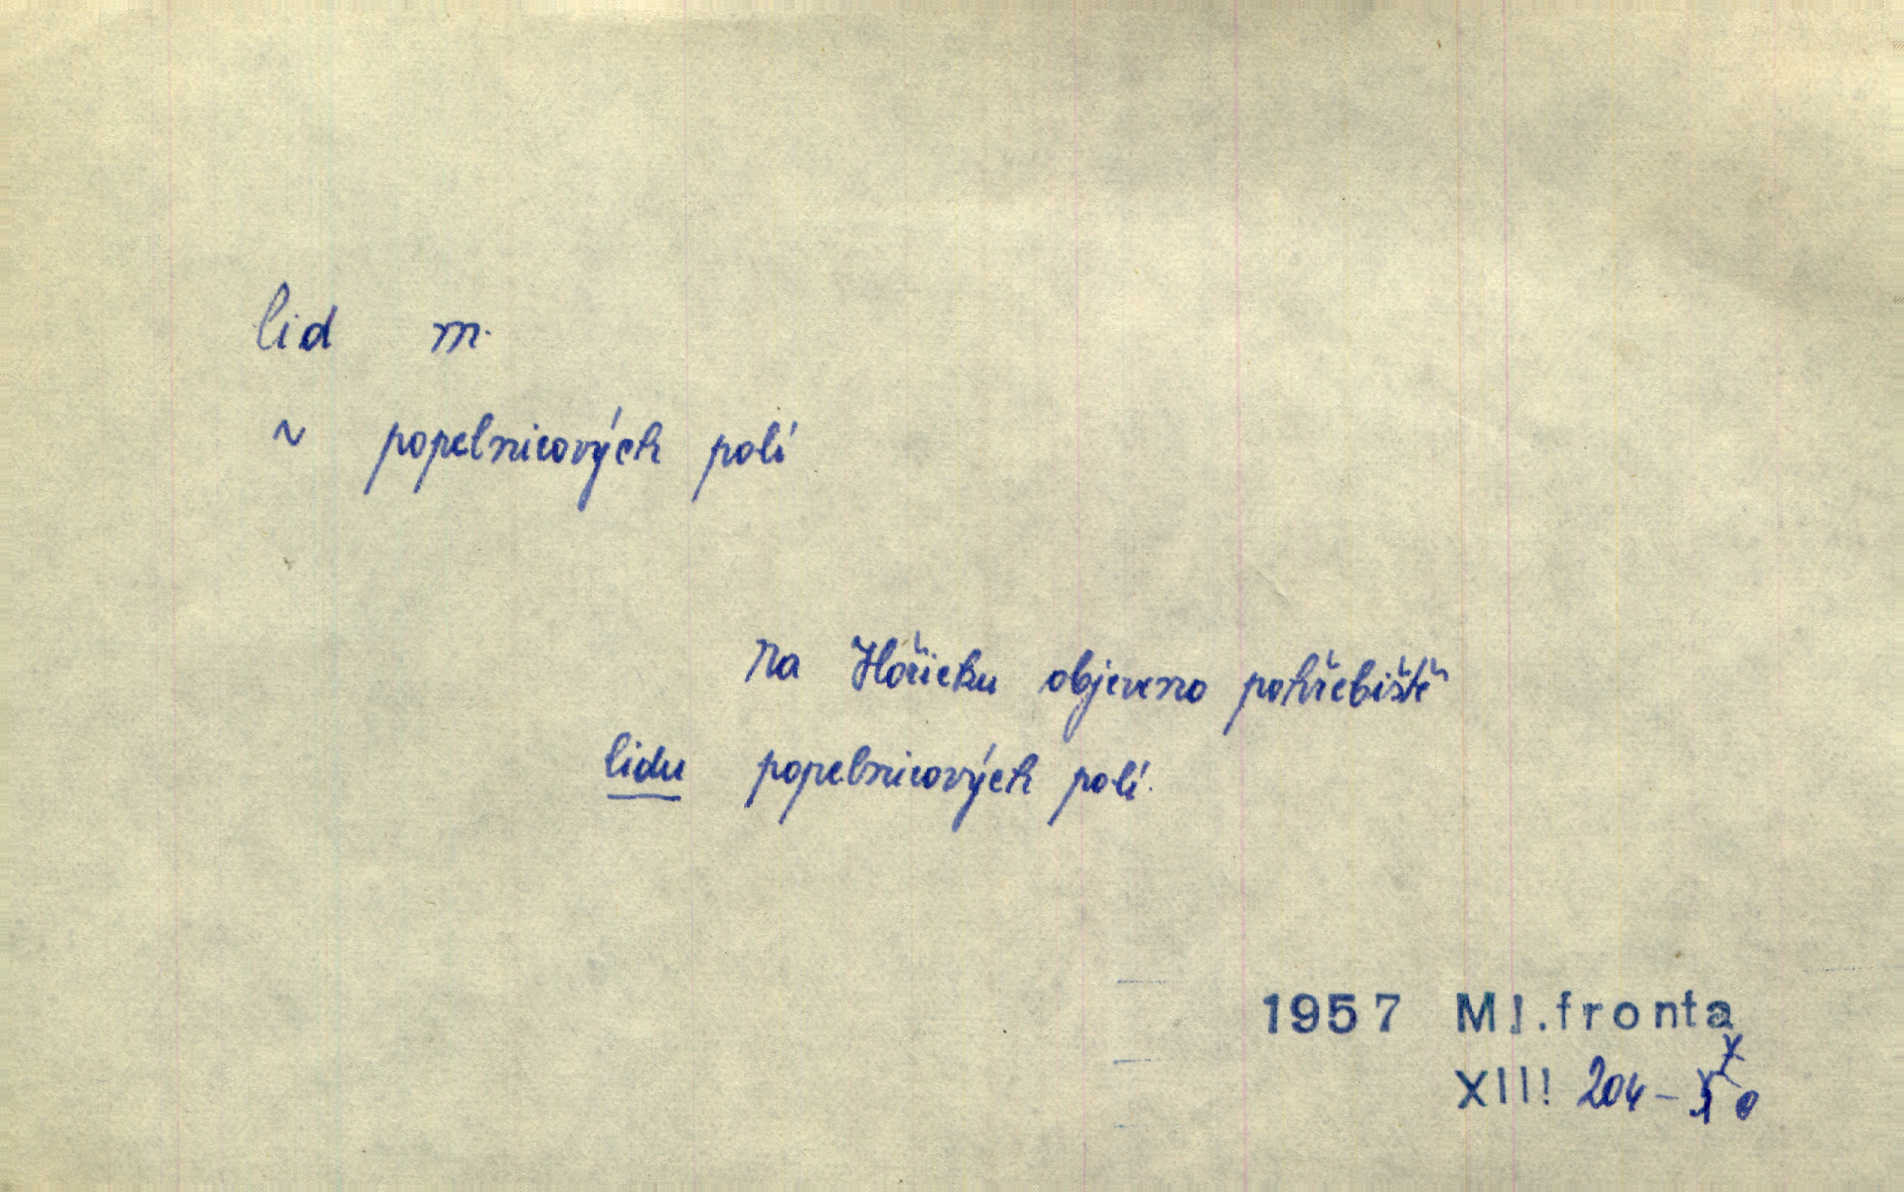 lid m.
~ popelnicových polí
Na Hořicku objeveno pohřebiště
lidu popelnicových polí.
1957 Ml. fronta
XIII 204 –